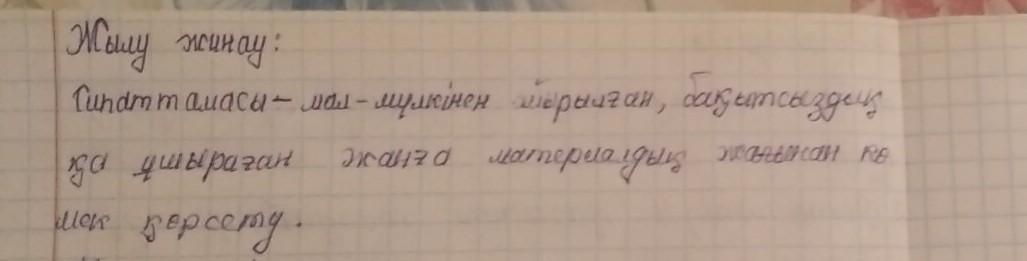 Жылу жинау:
Сипаттамасы - мал-мүлкінен айырылған, бақытсыздық
қа ұшыраған жанға материалдық жағынан кө
мек көрсету.